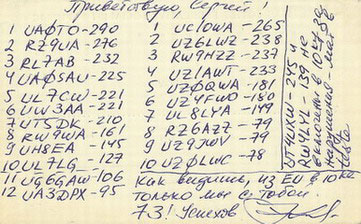 Приветствую, Сергей!
1 UA0TO-290
2 RZ9UA-276
3 RL7AB-232
4 UA0SAU-225
5 UL7CW-221
6 UW3AA-221
7 UT5DK-210
8 RW9WA-161
9 UH8EA-145
10 UL7LG-127
11 UG6GAW-106
12 UA3DPX-95
1 UC1OWA-265
2 UZ6LWZ-238
3 RW9HZZ-237
4 UZ1AWT-233
5 UZ0QWA-181
6 UZ4FWO-180
7 UL8LYA-149
8 RZ6AZZ-79
9 UZ9JWV-79
10 UZ0LWC-78
UT4UXW-245 и
RW4LYL-139 не
включены в
нарушения
testa
Как видишь, из EU в 10ке
только мы с тобой.
73! Успехов